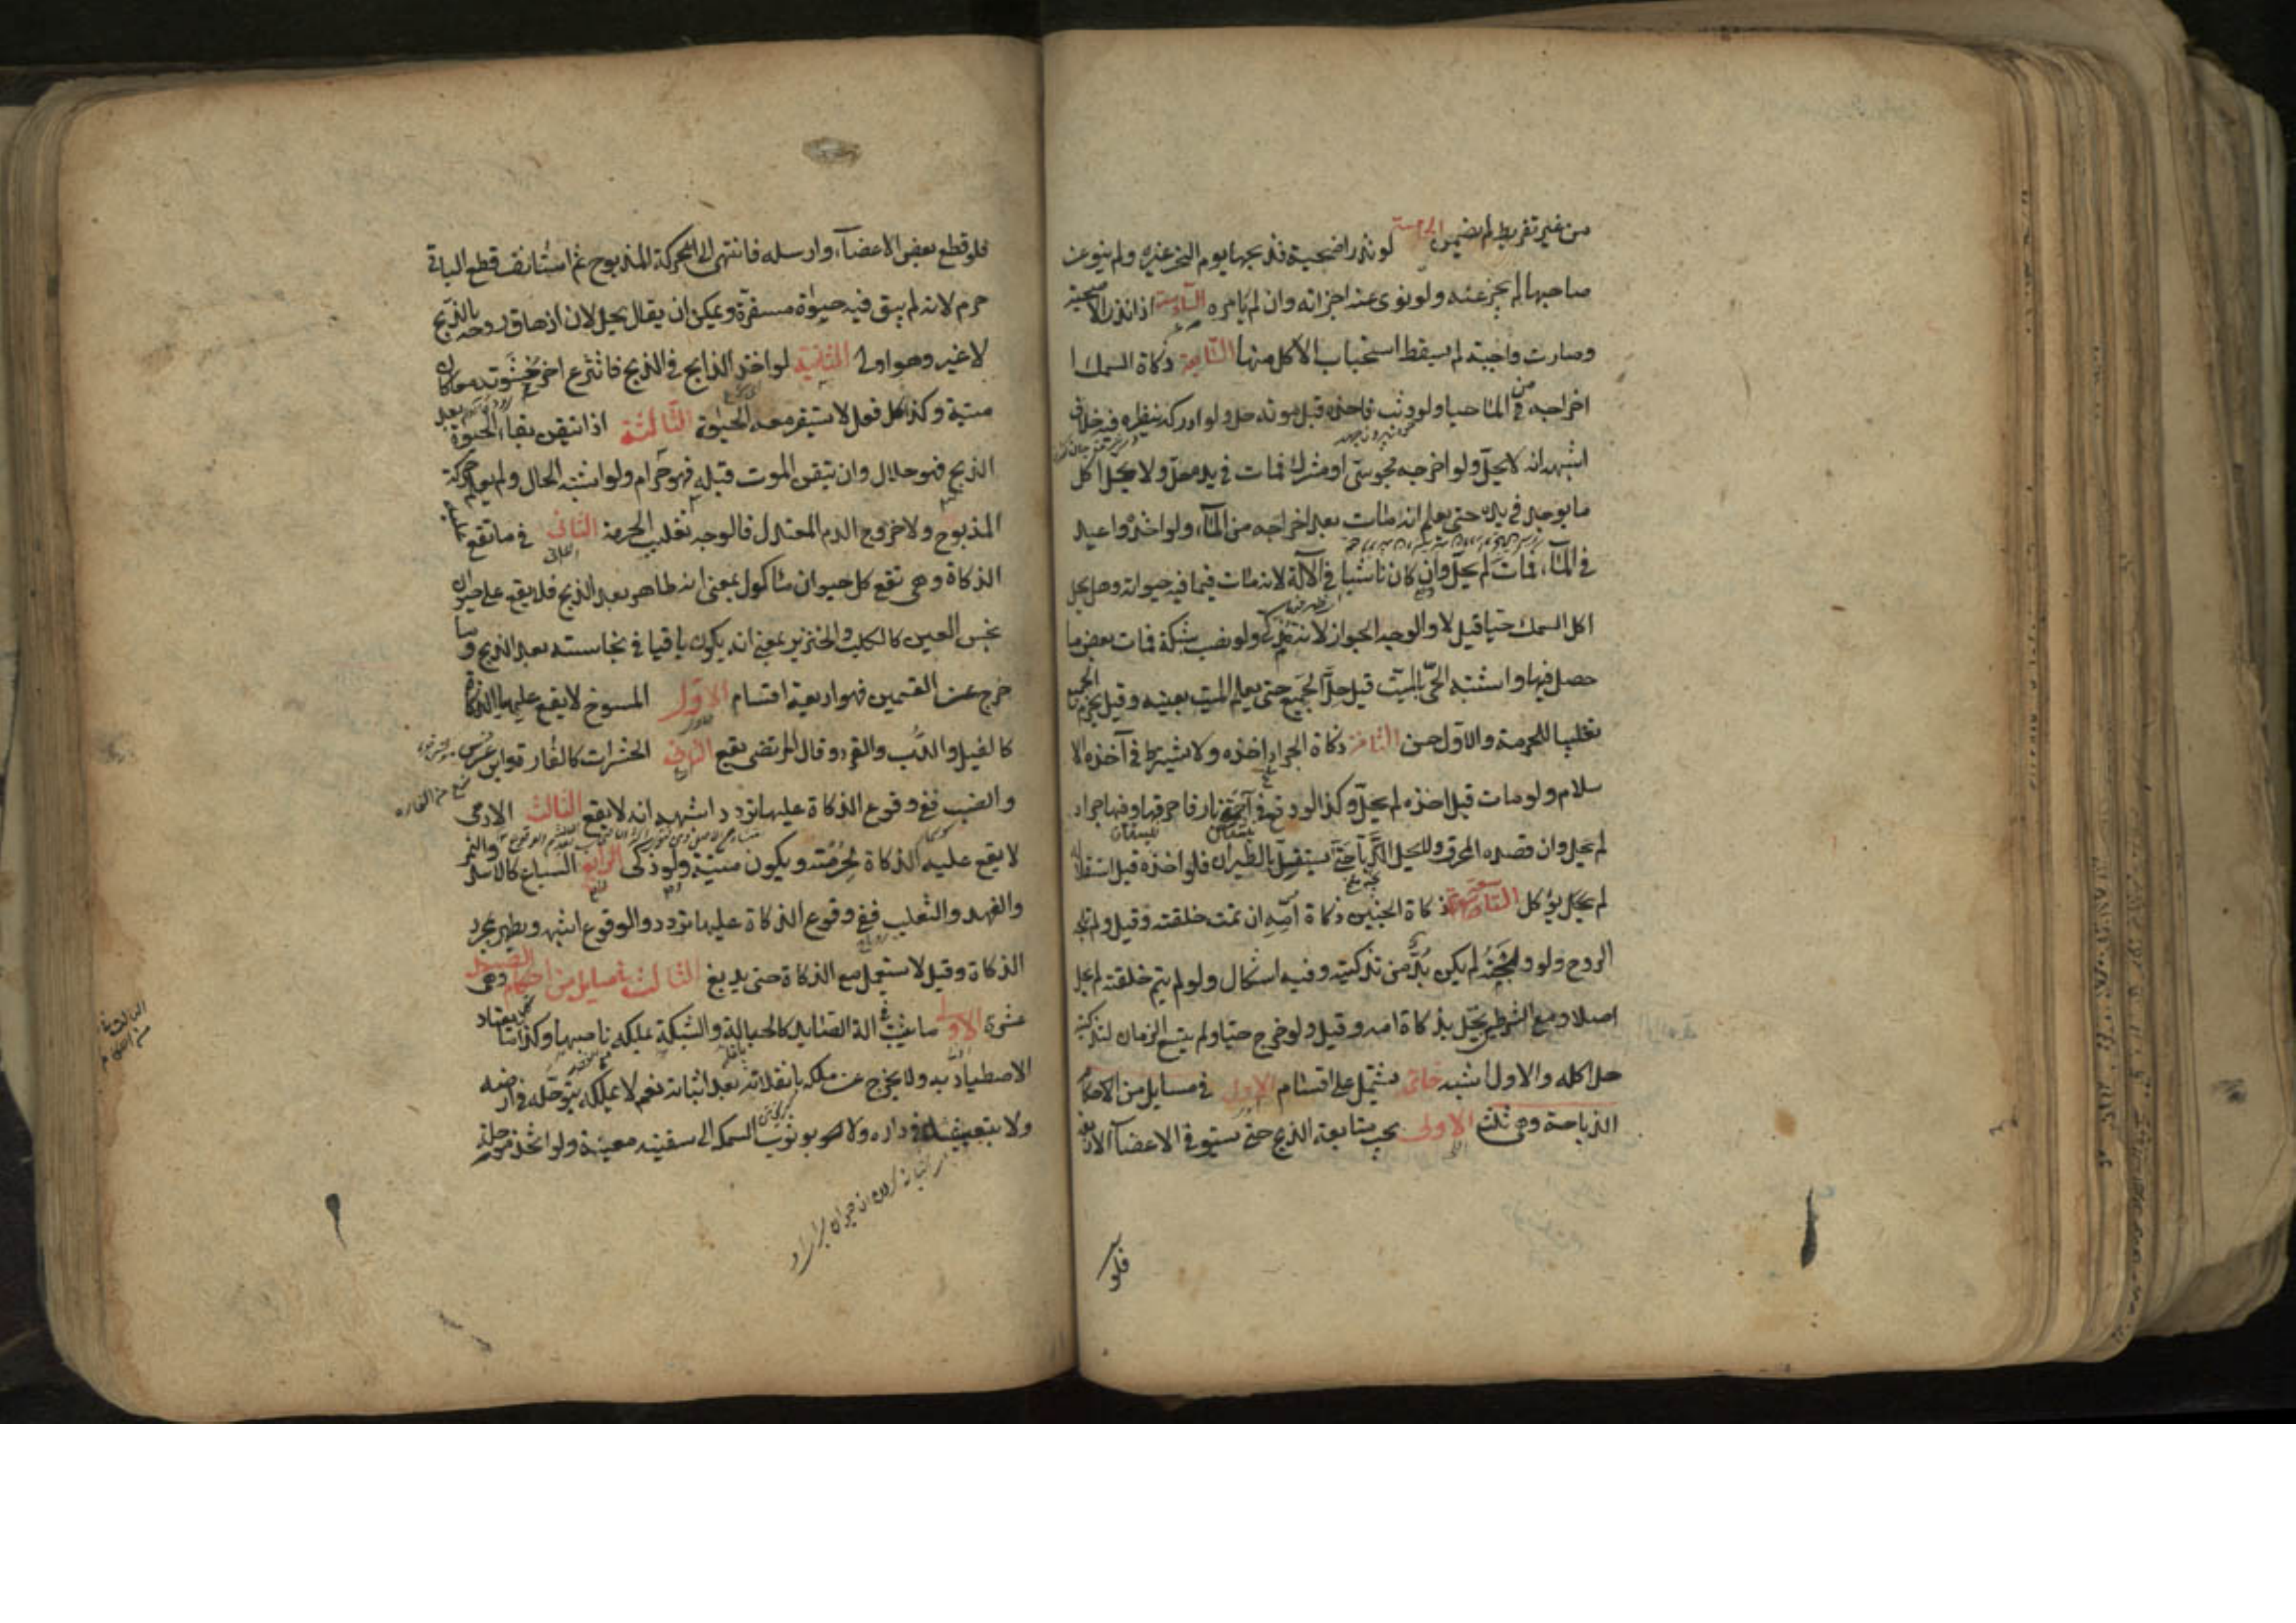 من غير تفريط لم يضمن الخامسة لو نذر اضحية فذبحها يوم النحر غيره ولم ينو عن
صاحبها لم يجز عنه ولو نوى عنه اجزأته وان لم يأمره السادسة اذا نذر الاضحية
وصارت واجبة لم يسقط استحباب الاكل منها السابعة ذكاة السمك
اخراجه من المآ حيا ولو وثب فاخذه قبل موته حل ولو ادركه بنظره فيه خلاف
اشبهه انه لا يحل ولو اخرجه مجوسى او مشرك فمات في يده حل ولا يحل اكل
ما يوجد في يده حتى يعلم انه مات بعد اخراجه من المآء ولو اخذ واعيد
في المآء فمات لم يحل وان كان ناشبا في الآلة لانه مات فيما فيه حياته وهل يحل
اكل السمك حيا قيل لا والوجه الجواز لانه مذكى ولو نصب شبكة فمات بعض ما
حصل فيها واشتبه الحى بالميت قيل حل الجميع حتى يعلم الميت بعينه وقيل يحرم الجميع
تغليبا للحرمة والاول حسن الثامنة ذكاة الجراد اخذه ولا يشترط في آخذه الا
سلام ولو مات قبل اخذه لم يحل وكذا لو وقع في اجمة نار فاحرقها وفيها جراد
لم يحل وان قصده المحرق ولا يحل الدبا حتى يستقل بالطيران فلو اخذه قبل استقلاله
لم يحل يؤكل التاسعة ذكاة الجنين ذكاة امه ان تمت خلقته وقيل ولم تلجه
الروح ولو ولجته لم يكن بد من تذكيته وفيه اشكال ولو لم يتم خلقته لم يحل
اصلا ومع الشرطين يحل بذكاة امه وقيل ولو خرج حيا ولم يتسع الزمان لتذكيته
حل اكله والاول اشبه خاتمة تشتمل على اقسام الاول في مسايل من الاحكام
الذباحة وهى ثلث الاولى يجب متابعة الذبح حتى يستوفى الاعضآ الاربعة
فلو
فلو قطع بعض الاعضآء وارسله فانتهى الى الحركة المذبوح ثم استأنف قطع الباقى
حرم لانه لم يبق فيه حيوة مستقرة ويمكن ان يقال يحل لان ازهاق روحه بالذبح
لا غير وهو اولى الثانية لو اخذ الذابح في الذبح فانتزع اخر حشوته معا كان
ميتة وكذا كل فعل لا يستقر معه الحيوة الثالثة اذا تيقن بقاء الحيوة بعد
الذبح فهو حلال وان تيقن الموت قبله فهو حرام ولو اشتبه الحال ولم يعلم حركة
المذبوح ولا خروج الدم المعتدل فالوجه تغليب الحرمة الثانى في ما تقع عليه
الذكاة وهى تقع كل حيوان ماكول بمعنى انه طاهر بعد الذبح فلا يقع على حيوان
نجس العين كالكلب والخنزير بمعنى انه يكون باقيا في نجاسته بعد الذبح وما
خرج عن القسمين فهو اربعة اقسام الاول المسوخ لا يقع عليها الذكاة
كالفيل والدب والقرد وقال المرتضى يقع الثانى الحشرات كالفار وابن عرس
والضب ففى وقوع الذكاة عليها تردد اشبهه انه لا يقع الثالث الادمى
لا يقع عليه الذكاة لحرمته ويكون ميتة ولو ذكى الرابع السباع كالاسد والنمر
والفهد والثعلب ففى وقوع الذكاة عليها تردد والوقوع اشبه ويطهر بمجرد
الذكاة وقيل لا يستعمل مع الذكاة حتى يدبغ الثالث في مسايل من احكام الصيد وهى
عشرة الاولى ما يثبت في الة الصايد كالحبالة والشبكة يملكه ناصبها وكذا كل ما يعتاد
الاصطياد به ولا يخرج عن ملكه بانفلاته بعد اثباته نعم لا يملكه بتوحله في ارضه
ولا بتعشيشه في داره ولا هو بوثوب السمكة الى سفينته معينة ولو اتخذ موحلة